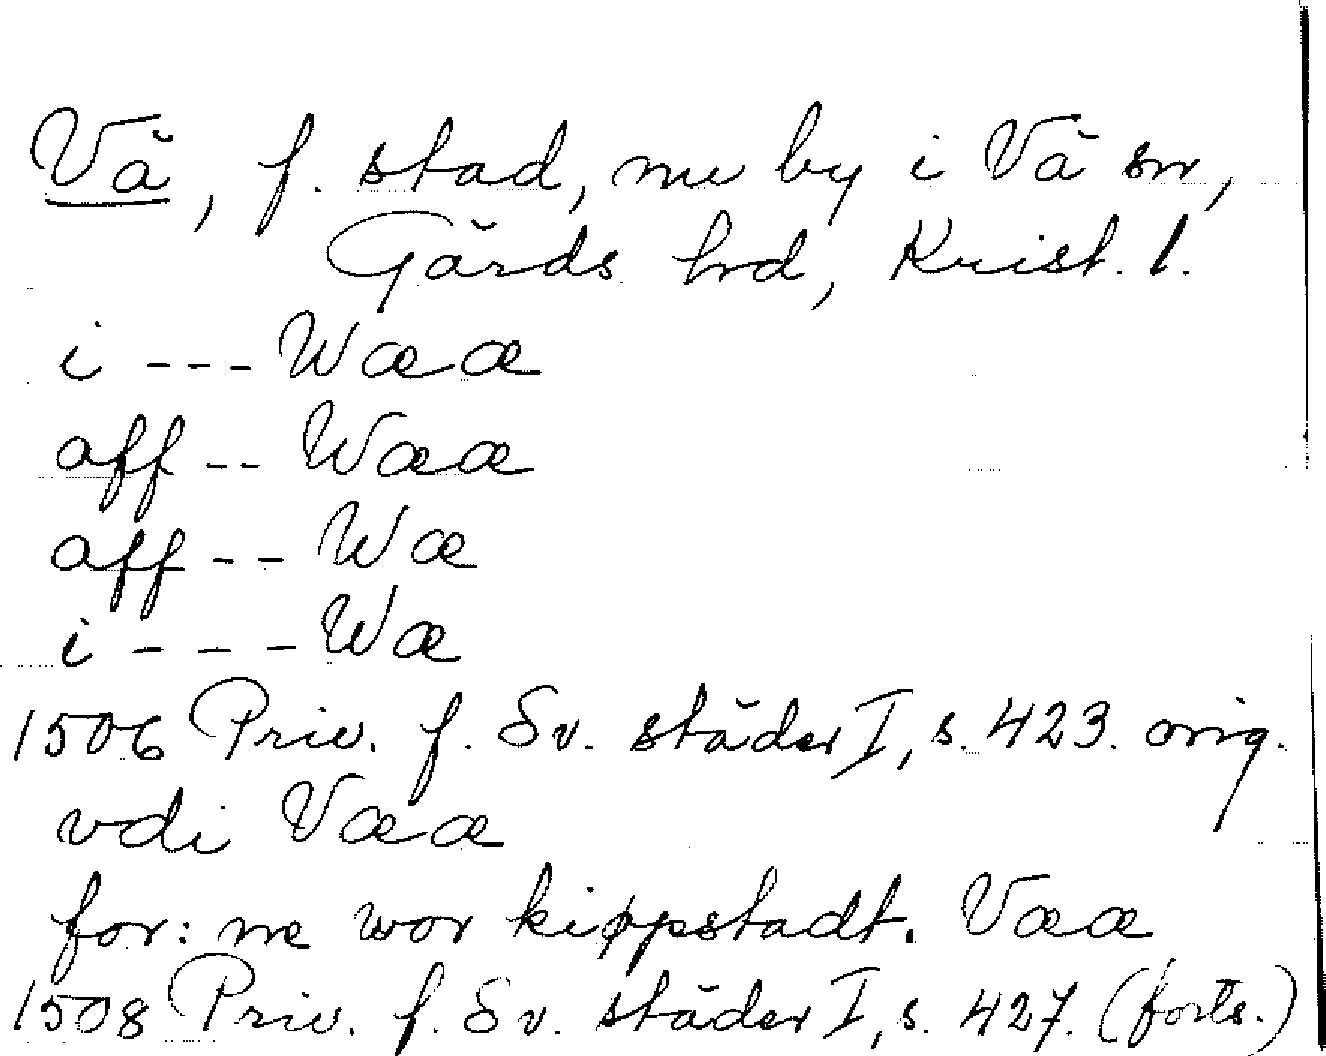 Vä, f. stad, nu by i Vä sn,
Gärds hd, Krist. l.
i --- Wææ
aff -- Wææ
aff -- Wæ
i - - - Wæ
1506 Priv. f. Sv. städer I, s. 423. orig.
vdi Vææ
for: ne wor kippstadt. Vææ
1508 Priv. f. Sv. städer I, s. 427. (forts.)